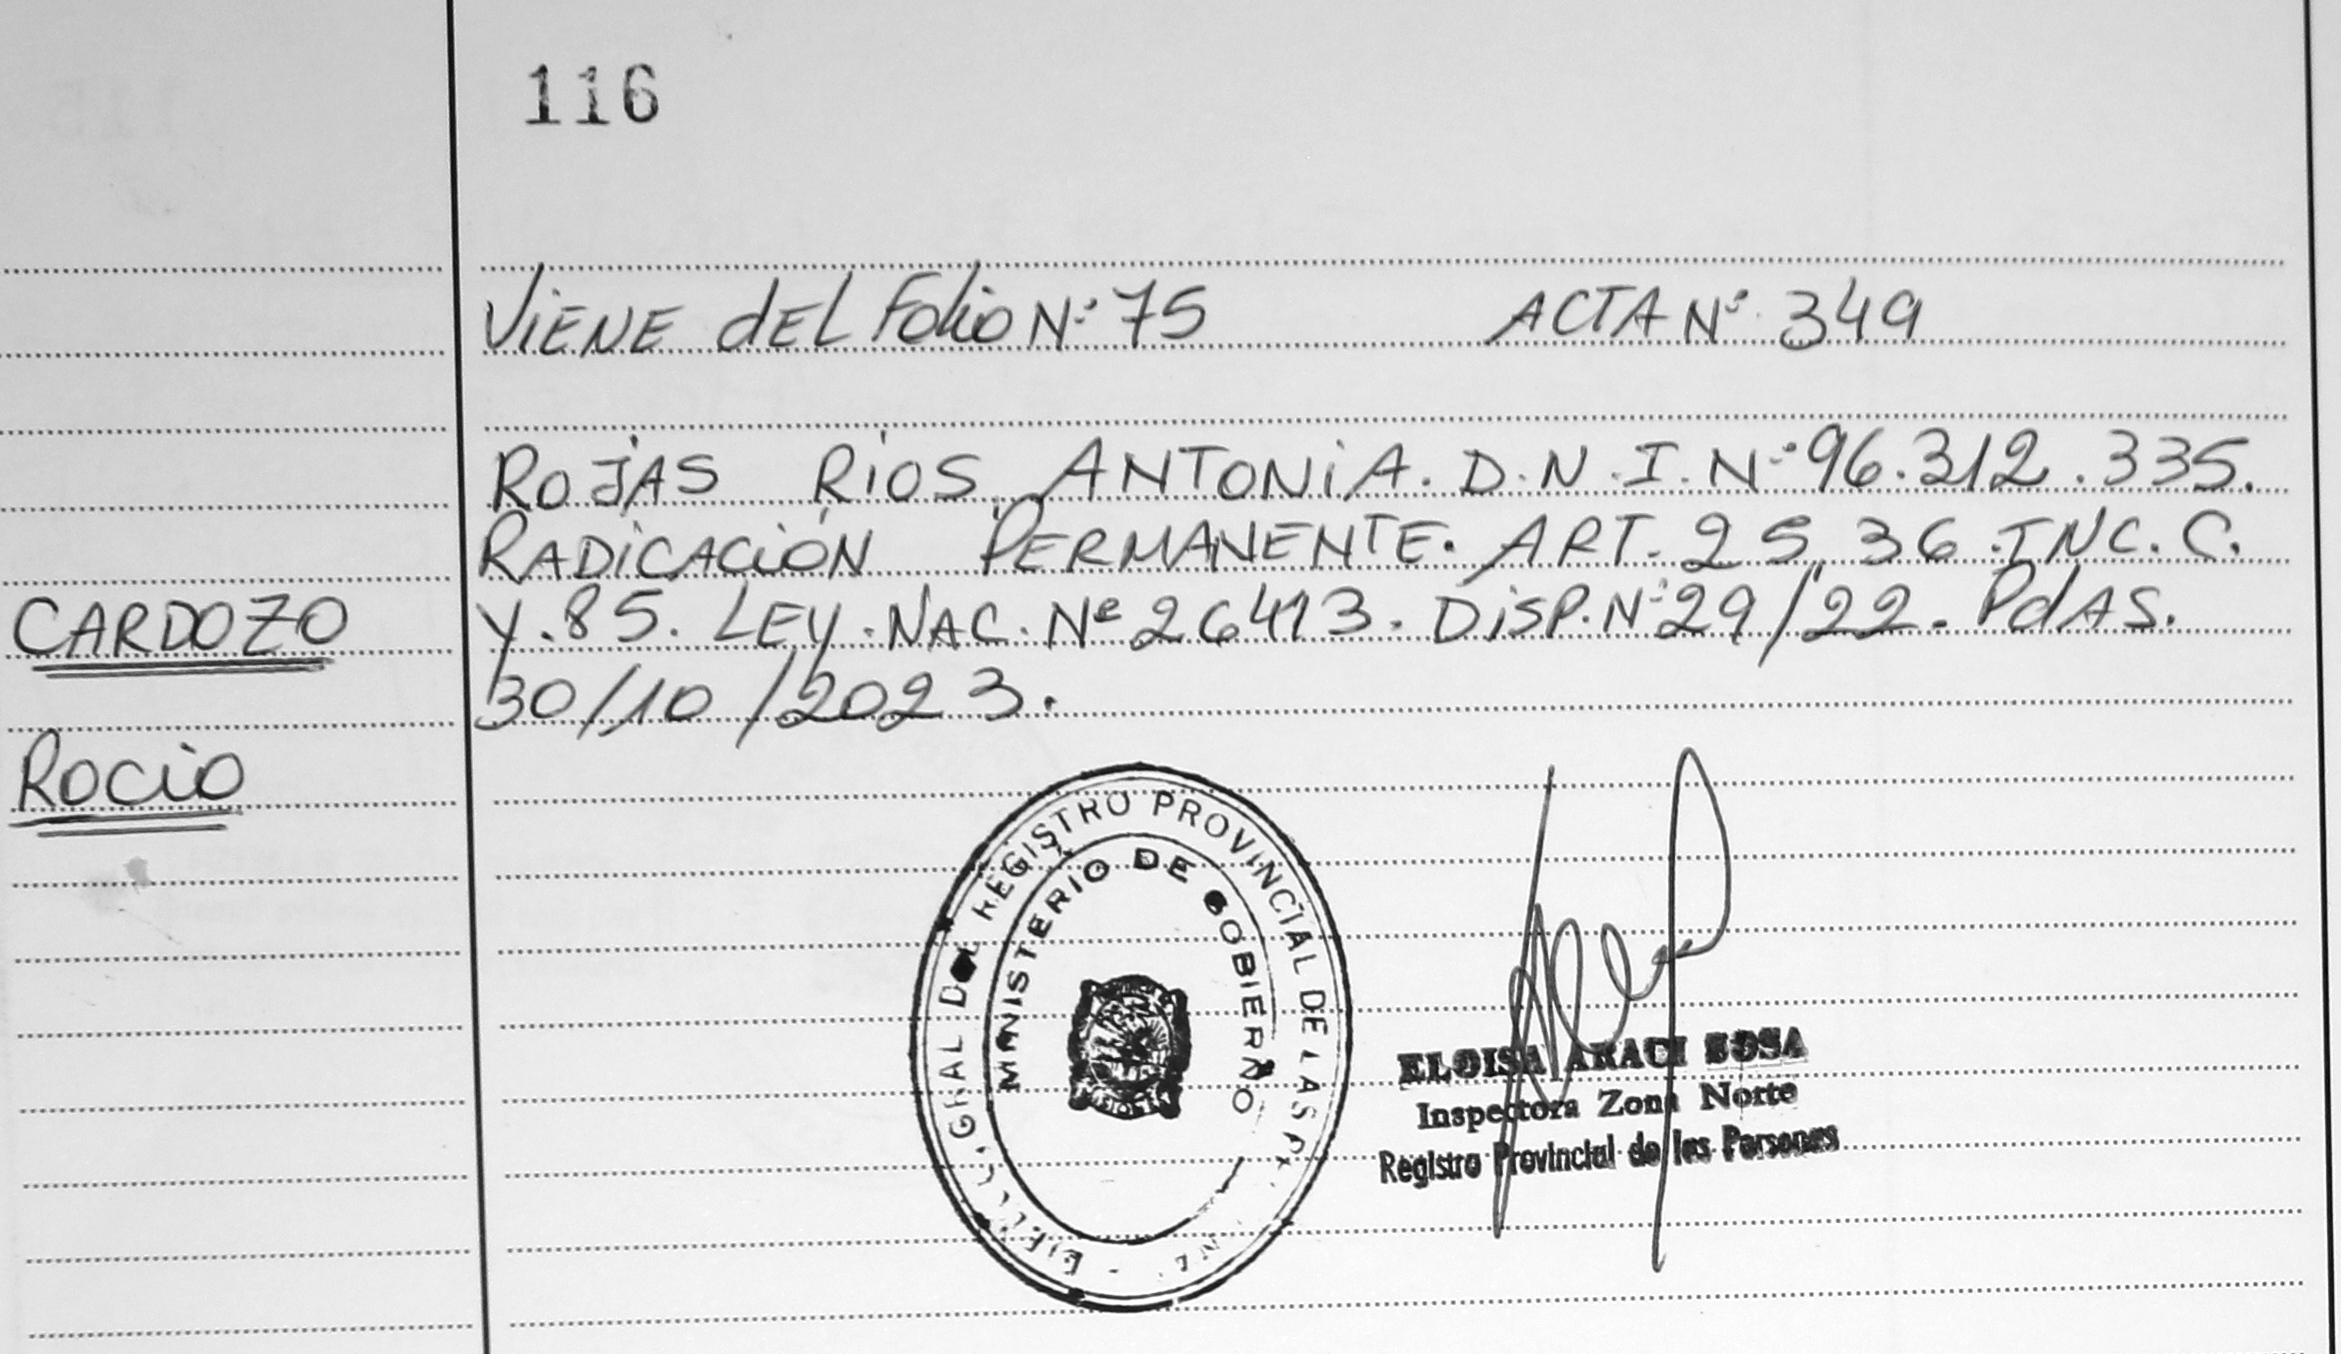 116
ViENE dEL Folio N° 75 ACTA N° 349
ROJAS RÍOS ANTONiA. D.N.I. N° 96.312.335.
RADiCACiÓN PERMANENTE. ART. 25 36 INC. C.
CARDOZO
Y. 85. LEY. NAC. Nº 26413. DiSP. N° 29/22. PdAS.
30/10/2023.
ROCiO
GRAL DEL REGISTRO PROVINCIAL DE LAS
MINISTERIO DE GOBIERNO
ELOISA ARACI SOSA
Inspectora Zona Norte
Registro Provincial de las Personas